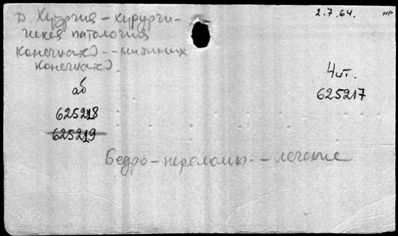 Хирургия - хирурги-
ческая патология
конечностей -- нижних
конечностей
2.7.64.
Чит.
625217
аб
625218
625219
Бедро - переломы -- лечение